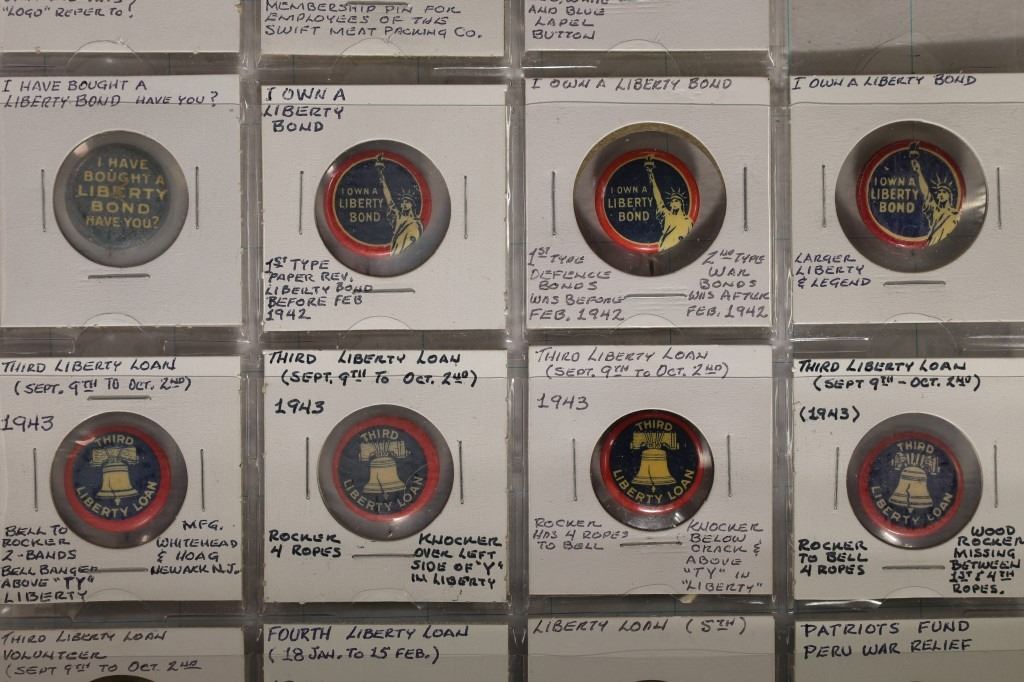 "LOGO" REFER TO?
MEMBERSHIP PIN FOR
EMPLOYEES OF THE
SWIFT MEAT PACKING CO.
AND BLUE
LAPEL
BUTTON
I HAVE BOUGHT A
LIBERTY BOND HAVE YOU?
I HAVE
BOUGHT A
LIBERTY
BOND
HAVE YOU?
I OWN A
LIBERTY
BOND
I OWN A
LIBERTY
BOND
1ST TYPE
PAPER REV.
LIBERTY BOND
BEFORE FEB
1942
I OWN A LIBERTY BOND
I OWN A
LIBERTY
BOND
1ST TYPE
DEFENCE
BONDS
WAS BEFORE
FEB. 1942
2ND TYPE
WAR
BONDS
WAS AFTER
FEB. 1942
I OWN A LIBERTY BOND
I OWN A
LIBERTY
BOND
LARGER
LIBERTY
& LEGEND
THIRD LIBERTY LOAN
(SEPT. 9TH TO OCT. 2ND)
1943
THIRD
LIBERTY LOAN
BELL TO
ROCKER
2-BANDS
BELL BANGER
ABOVE "TY"
LIBERTY
MFG.
WHITEHEAD
& HOAG
NEWARK N.J.
THIRD LIBERTY LOAN
(SEPT. 9TH TO OCT. 2ND)
1943
THIRD
LIBERTY LOAN
ROCKER
4 ROPES
KNOCKER
OVER LEFT
SIDE OF "Y"
IN LIBERTY
THIRD LIBERTY LOAN
(SEPT. 9TH TO OCT. 2ND)
1943
THIRD
LIBERTY LOAN
ROCKER
HAS 4 ROPES
TO BELL
KNOCKER
BELOW
CRACK &
ABOVE
"TY" IN
"LIBERTY"
THIRD LIBERTY LOAN
(SEPT 9TH - OCT. 2ND)
(1943)
THIRD
LIBERTY LOAN
ROCKER
TO BELL
4 ROPES
WOOD
ROCKER
MISSING
BETWEEN
1ST & 4TH
ROPES.
THIRD LIBERTY LOAN
VOLUNTEER
(SEPT 9TH TO OCT. 2ND
FOURTH LIBERTY LOAN
(18 JAN. TO 15 FEB.)
LIBERTY LOAN (5TH)
PATRIOTS FUND
PERU WAR RELIEF